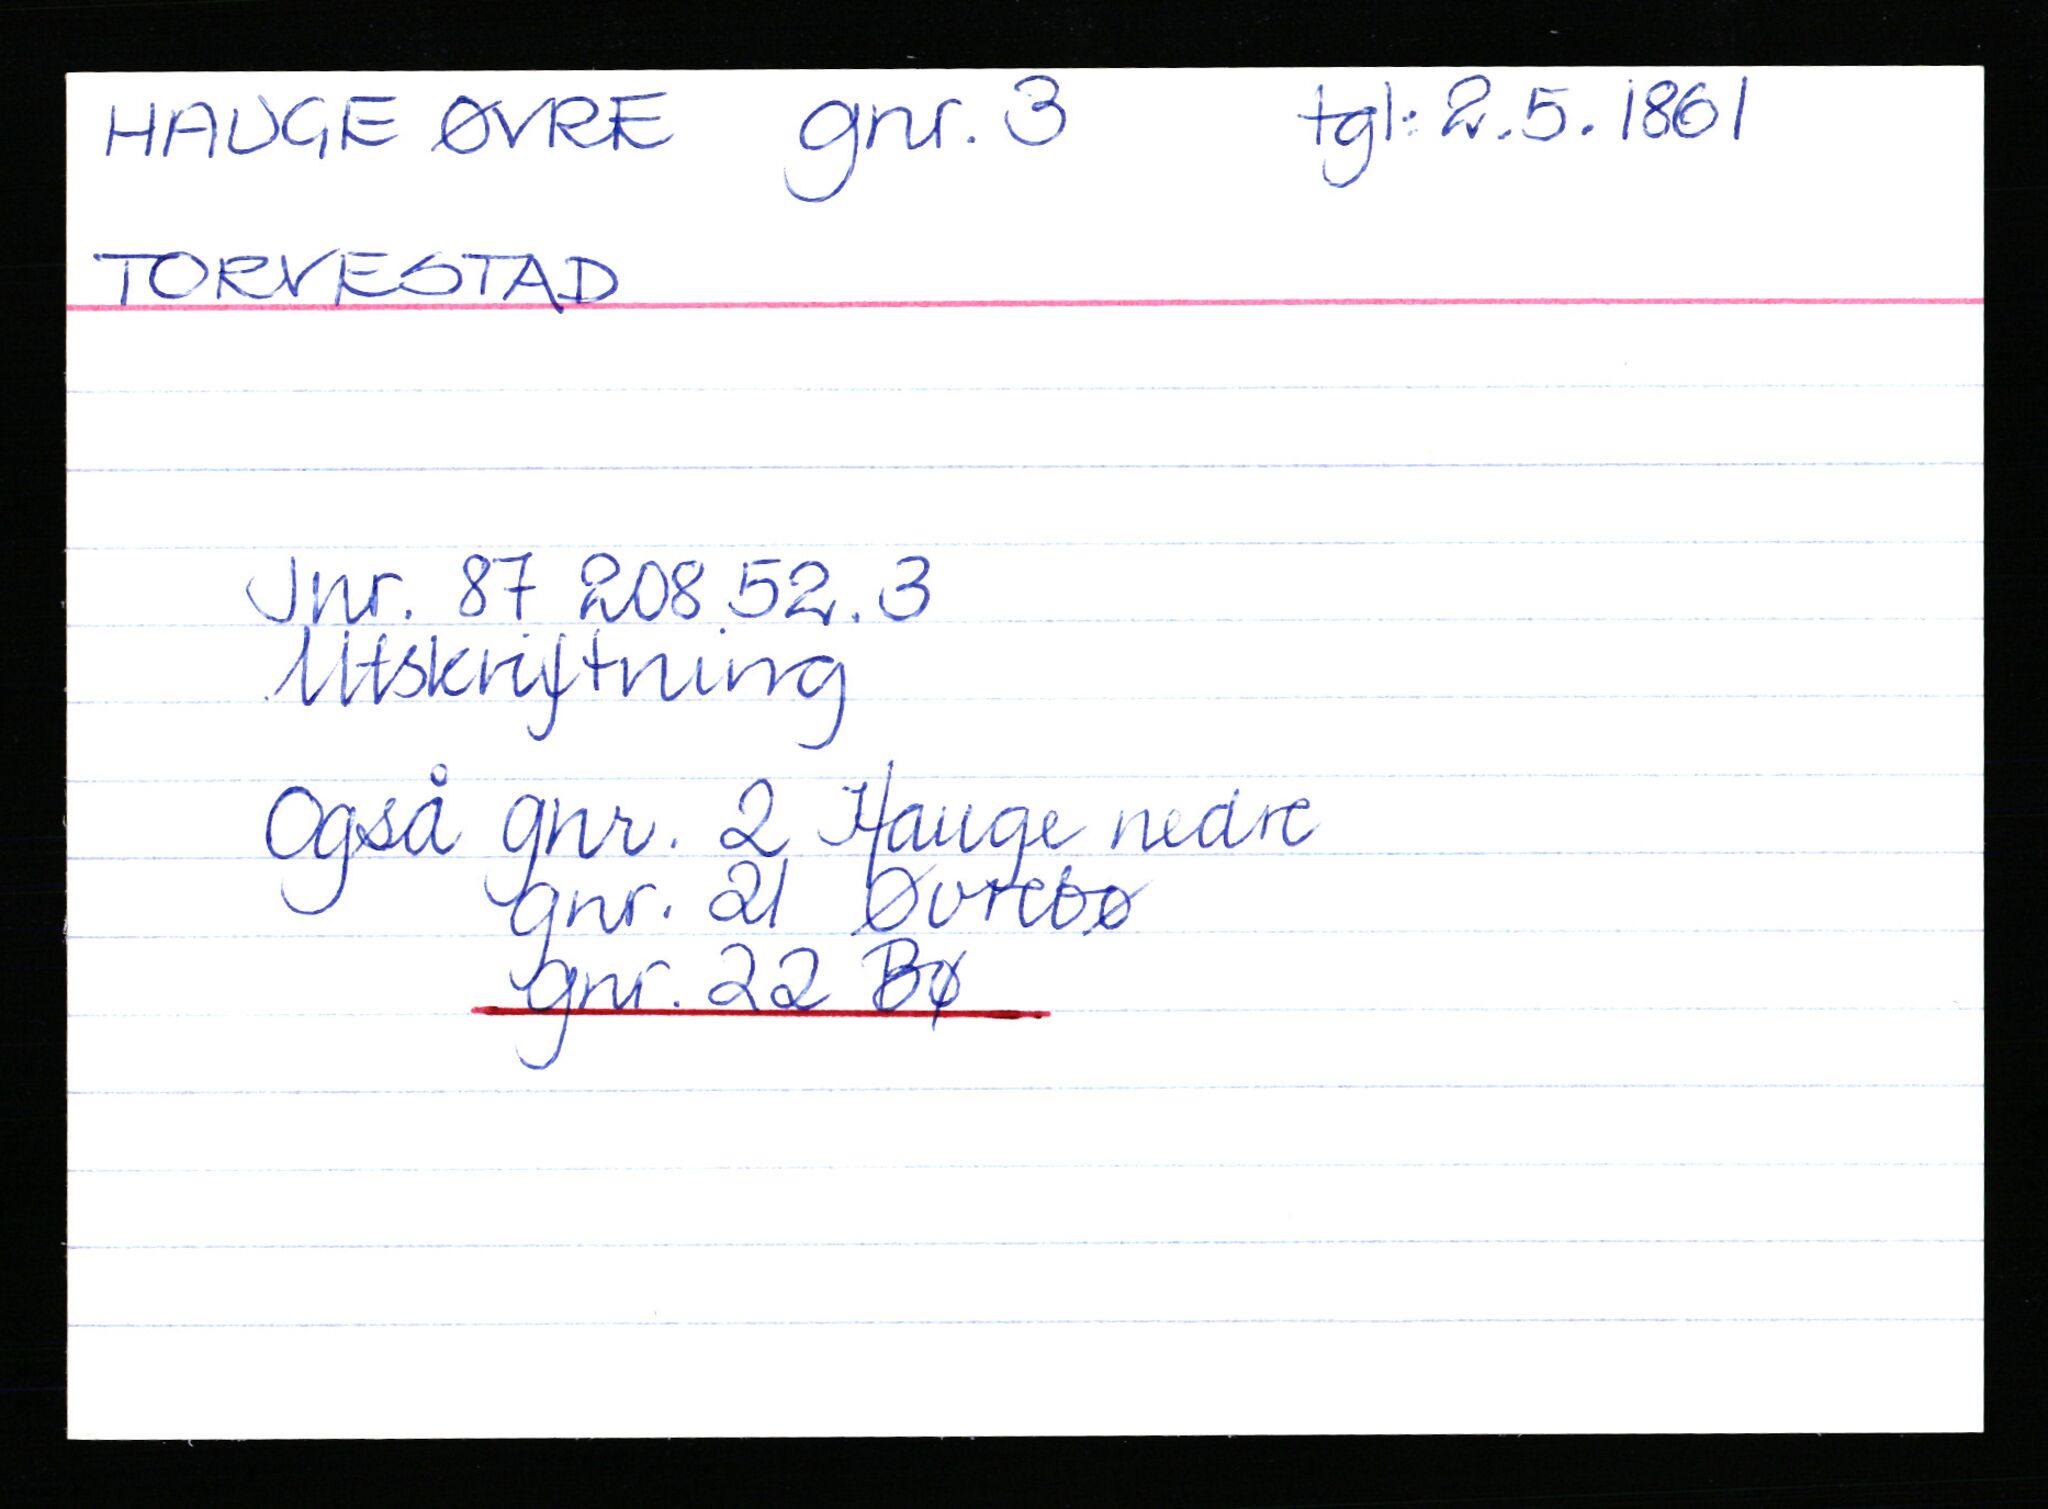 HAUGE ØVRE gnr. 3 tgl: 2.5.1861
TORVESTAD
Jnr. 87 208 52.3
Utskriftning
Også gnr. 2 Hauge nedre
gnr. 21 Øvrebø
gnr. 22 Bø